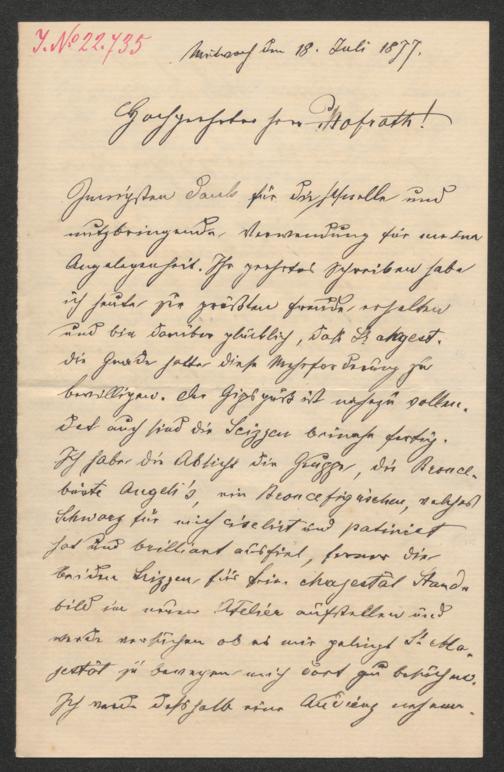 J. No 22.735
Mittwoch den 18. Juli 1877.
Hochgeehrter Herr Hofrath!
Innigsten Dank für die schnelle und
nutzbringende Verwendung für meine
Angelegenheit. Ihr geehrtes Schreiben habe
ich heute zur größten Freude erhalten
und bin darüber glücklich, daß Se. Majest.
die Gnade hatte diese Mehrforderung zu
bewilligen. Der Gipsguß ist nahezu vollen-
det auch sind die Scizzen beinahe fertig.
Ich habe die Absicht die Gruppe, die Bronce-
büste Angeli's, ein Broncefigürchen, welches
Schwarz für mich ciselirt und patinirt
hat und brilliant ausfiel, ferner die
beiden Scizzen für Seine Majestät Stand-
bild im neuen Atelier aufstellen und
werde versuchen ob es mir gelingt Se. Ma-
jestät zu bewegen mich dort zu besuchen.
Ich werde deßhalb eine Audienz nehmen.